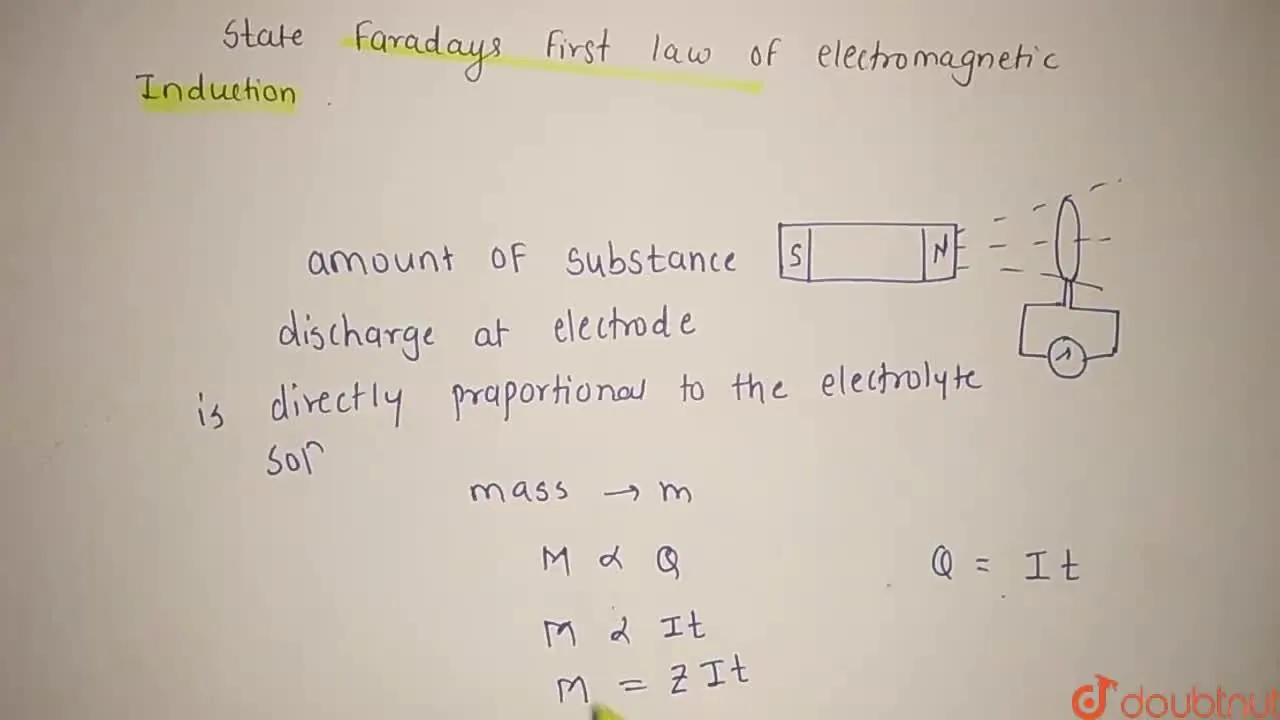 State Faradays First law of electromagnetic
Induction .
amount of substance
S N
discharge at electrode
is directly praportional to the electrolyte
mass → m
M α Q
Q = It
M α It
M = Z It
doubtnut